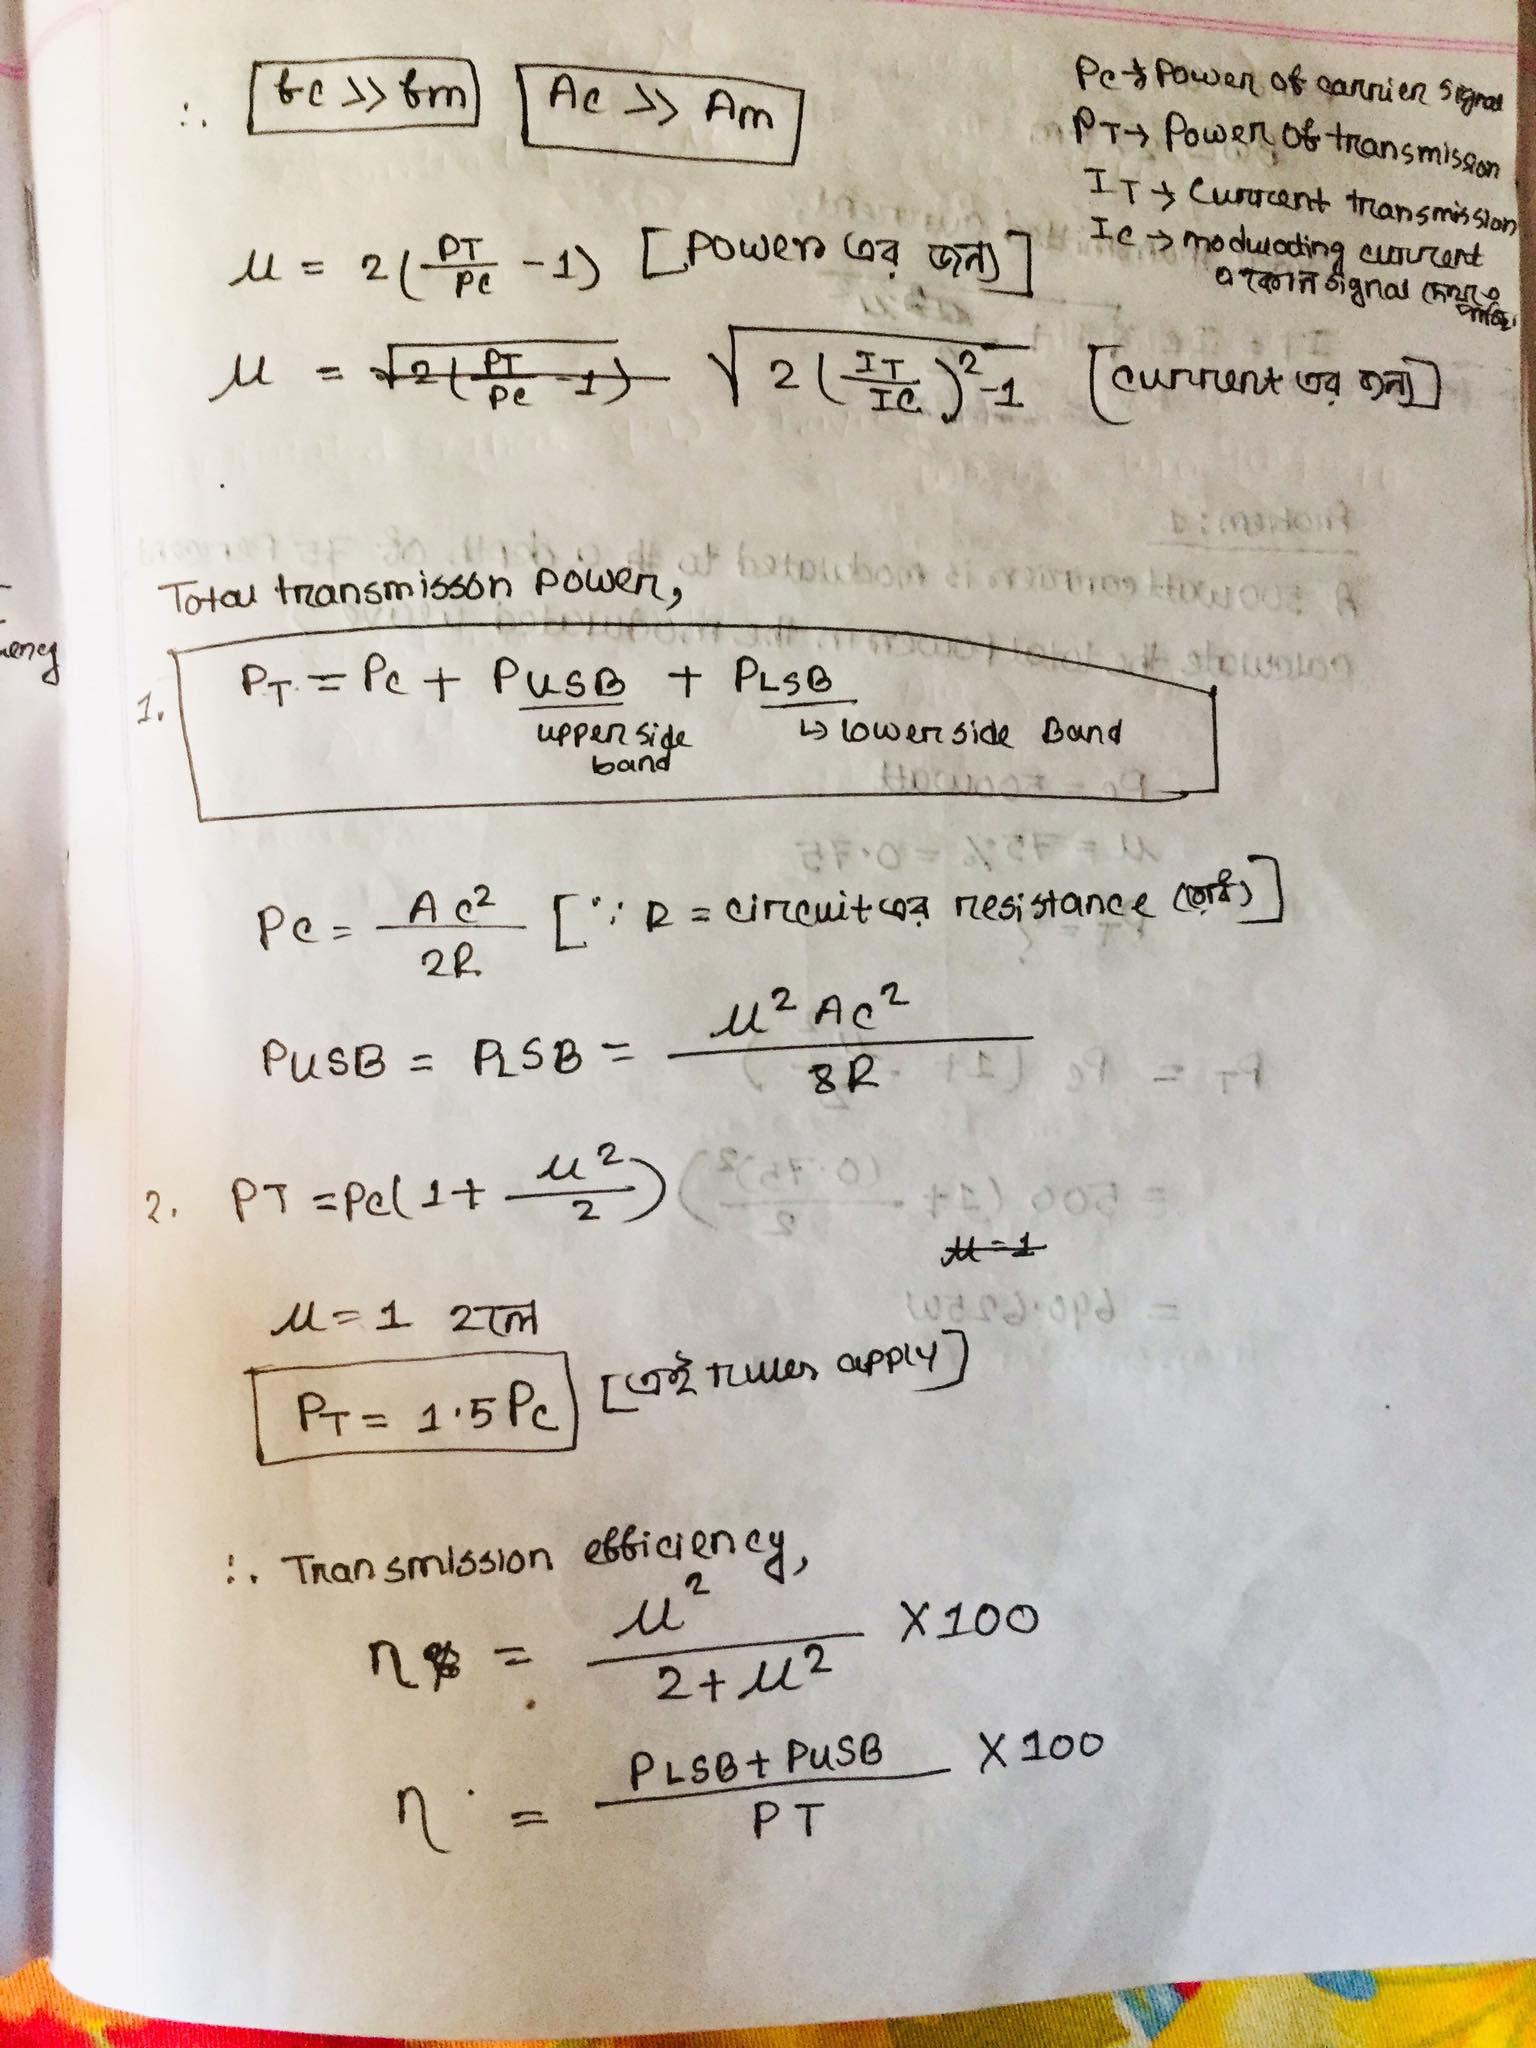 ∴ fc >> fm Ac >> Am
Pc → Power of carrier signal
PT → Power of transmission
IT → Current transmission
Ic → modulating current
signal
μ = 2(PT/Pc - 1) [Power এর জন্য]
μ = √2(PT/Pc - 1) √2(IT/Ic)²-1 [current এর জন্য]
Total transmisson power,
1. PT = Pc + PUSB + PLSB
upper side band ↳ lower side Band
Pc = Ac²/2R [∵ R = circuit এর resistance (রোধ)]
PUSB = PLSB = μ²Ac²/8R
2. PT = Pc(1 + μ²/2)
μ=1
μ = 1 হলে
PT = 1.5 Pc [এই rules apply]
∴ Transmission efficiency,
η% = μ²/2+μ² X 100
η = PLSB + PUSB/PT X 100